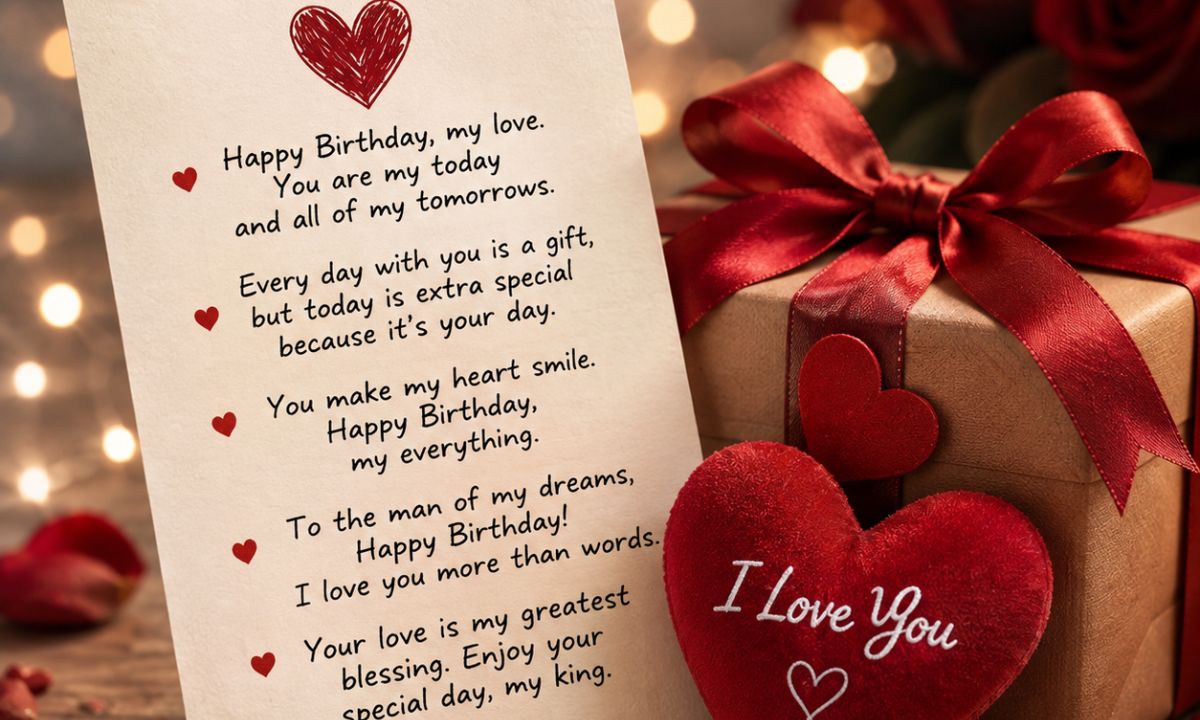 Happy Birthday, my love.
You are my today
and all of my tomorrows.
Every day with you is a gift,
but today is extra special
because it's your day.
You make my heart smile.
Happy Birthday,
my everything.
To the man of my dreams,
Happy Birthday!
I love you more than words.
Your love is my greatest
blessing. Enjoy your
special day, my king.
I Love You